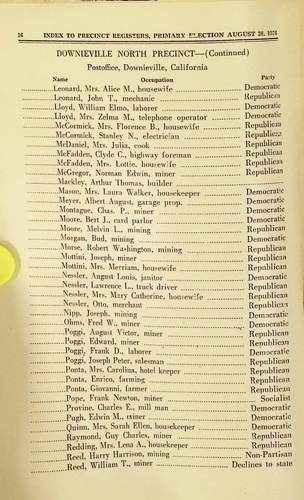 16 INDEX TO PRECINCT REGISTERS, PRIMARY ELECTION AUGUST 28, 1934
DOWNIEVILLE NORTH PRECINCT—(Continued)
Postoffice, Downieville, California
Name Occupation Party
Leonard, Mrs. Alice M., housewife Democratic
Leonard, John T., mechanic Republican
Lloyd, William Elmo, laborer Democratic
Lloyd, Mrs. Zelma M., telephone operator Democratic
McCormick, Mrs. Florence B., housewife Republican
McCormick, Stanley N., electrician Republican
McDaniel, Mrs. Julia, cook Republican
McFadden, Clyde C., highway foreman Republican
McFadden, Mrs. Lottie, housewife Republican
McGregor, Norman Edwin, miner Republican
Mackley, Arthur Thomas, builder
Mason, Mrs. Laura Walker, housekeeper Democratic
Meyer, Albert August, garage prop. Democratic
Montague, Chas. P., miner Democratic
Moore, Bert J., card parlor Democratic
Moore, Melvin L., mining Republican
Morgan, Bud, mining Democratic
Morse, Robert Washington, mining Republican
Mottini, Joseph, miner Republican
Mottini, Mrs. Merriam, housewife Republican
Nessler, August Louis, janitor Democratic
Nessler, Lawrence L., truck driver Republican
Nessler, Mrs. Mary Catherine, housewife Republican
Nessler, Otto, merchant Republican
Nipp, Joseph, mining Democratic
Ohms, Fred W., miner Democratic
Poggi, August Victor, miner Republican
Poggi, Edward, miner Republican
Poggi, Frank D., laborer Democratic
Poggi, Joseph Peter, salesman Republican
Ponta, Mrs. Carolina, hotel keeper Republican
Ponta, Enrico, farming Republican
Ponta, Giovanni, farmer Republican
Pope, Frank Newton, miner Socialist
Provine, Charles E., mill man Democratic
Pugh, Edwin M., miner Democratic
Quinn, Mrs. Sarah Ellen, housekeeper Democratic
Raymond, Guy Charles, miner Republican
Redding, Mrs. Lena A., housekeeper Republican
Reed, Harry Harrison, mining Non-Partisan
Reed, William T., miner Declines to state